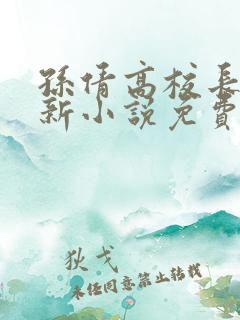 孫倩高校長
新小說免費
狄戈
未经同意禁止转载